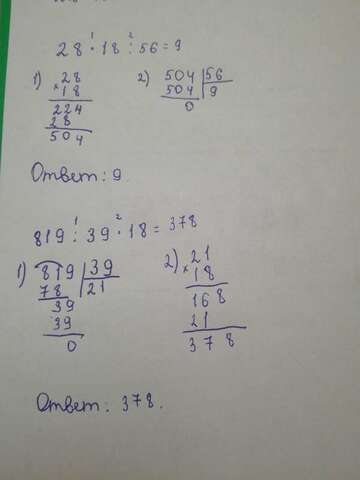 28 · 18 : 56 = 9
1) 28
× 18
224
28
504
2) 504 | 56
504 | 9
0
Ответ: 9.
819 : 39 · 18 = 378
1) 819 | 39
78 | 21
39
39
0
2) 21
× 18
168
21
378
Ответ: 378.